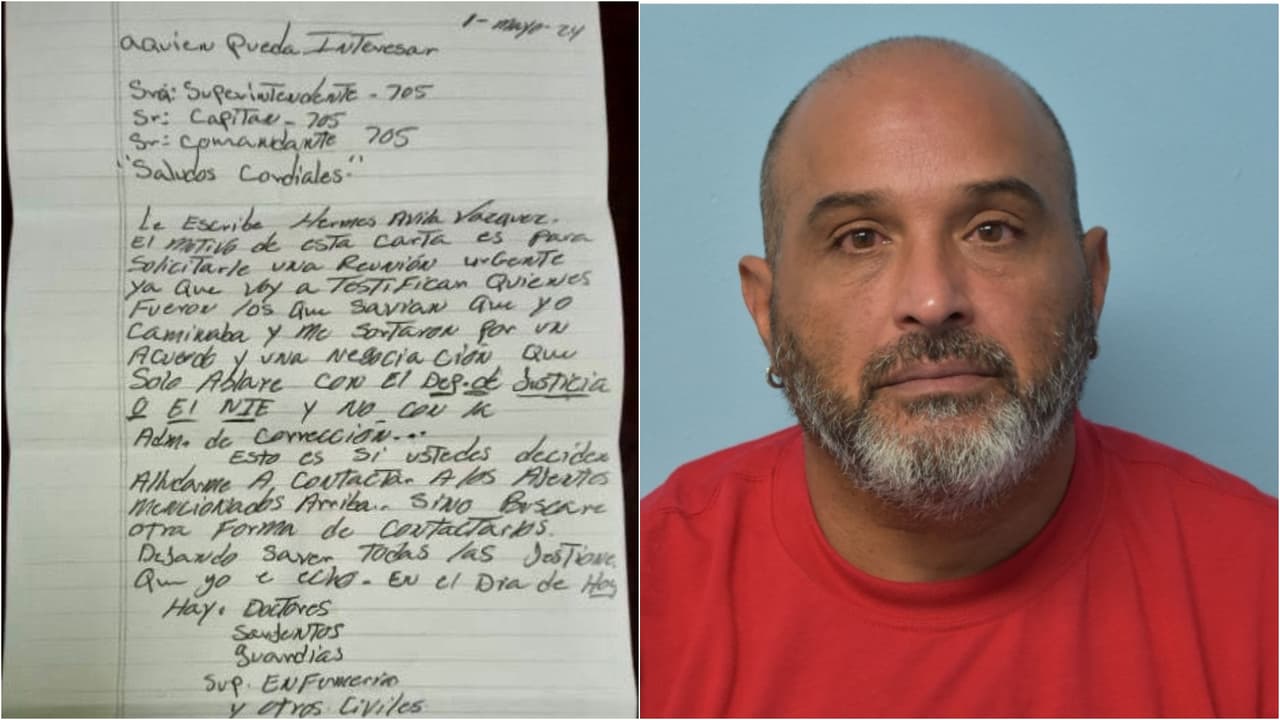 1- mayo-24
aquien Pueda Interesar
Sra: Superintendente - 705
Sr: Capitan - 705
Sr: Comandante 705
"Saludos Cordiales."
Le Escribe Hermes Avila Vazquez.
El motivo de esta carta es para
Solicitarle una Reunión urgente
ya que voy a Testificar Quienes
Fueron los que Savian que yo
Caminaba y me Sortaron por un
Acuerdo y una negocia ción que
Solo Ablare con el Dep. de Justicia
O El NIE y NO con la
Adm. de Corrección...
Esto es si ustedes deciden
Alludarme A Contactar A los Ajentos
mencionados Arriba.. Sino Buscare
otra Forma de Contactarlos.
Dejando Saver Todas las Jestione
Que yo e echo. En el Dia de Hoy
Hay. Doctores
Sarjentos
guardias
Sup. Enfumeria
y otros Civiles